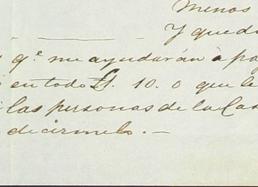 Menos
Y qued
qᵉ me ayudarán à pa
en todo £. 10. 0 que le
las personas de la Ca
decírmelo. —